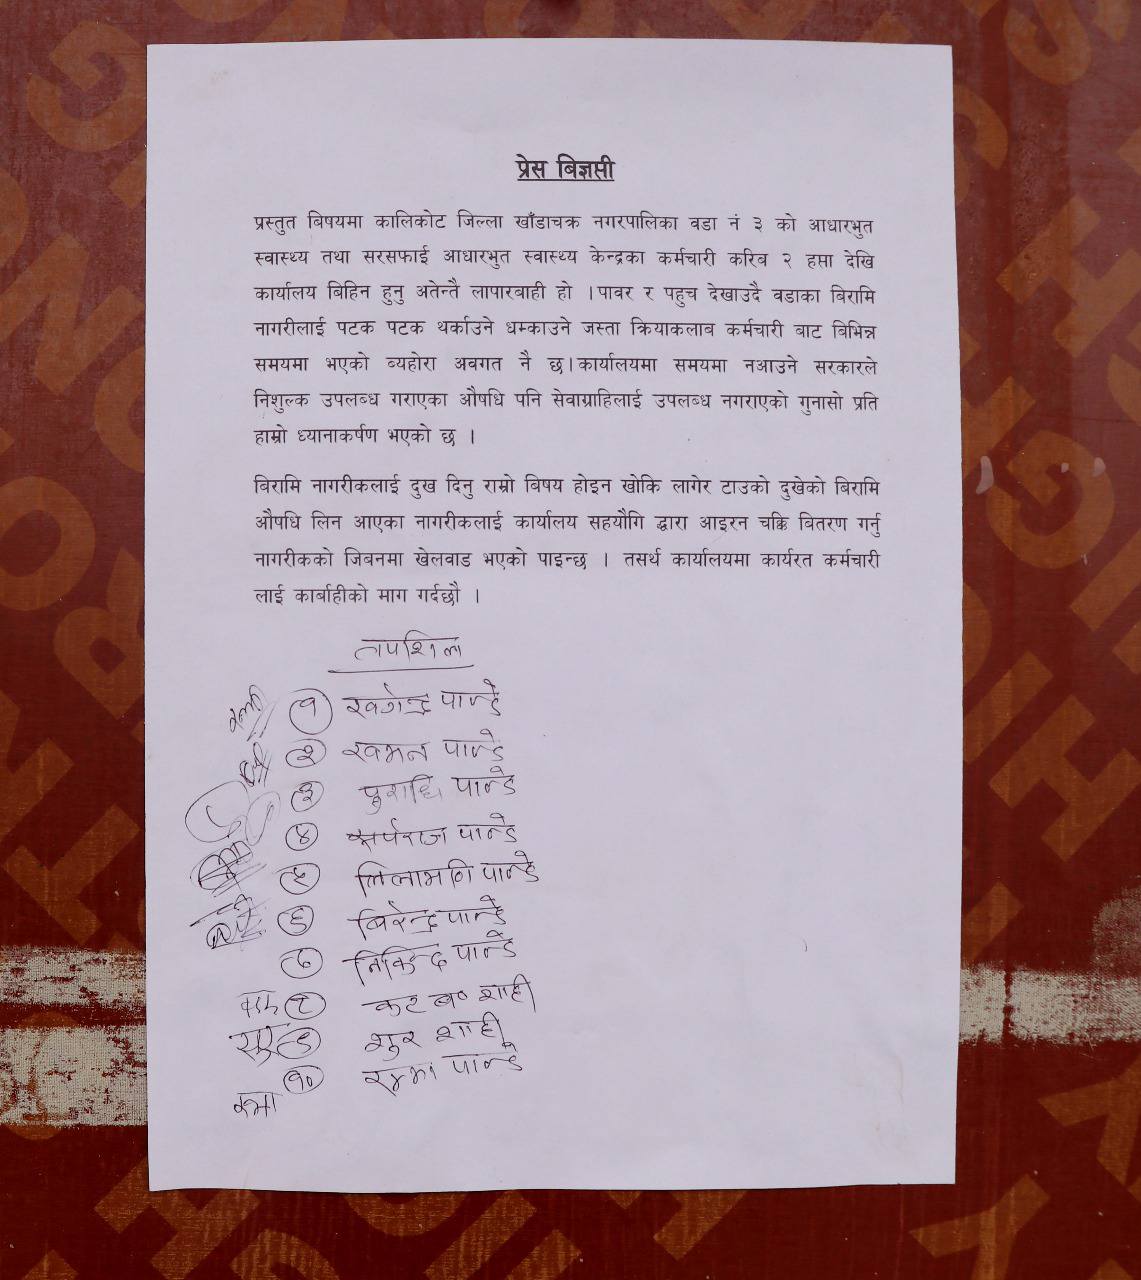 प्रेस बिज्ञप्ती
प्रस्तुत बिषयमा कालिकोट जिल्ला खाँडाचक्र नगरपालिका वडा नं ३ को आधारभुत
स्वास्थ्य तथा सरसफाई आधारभुत स्वास्थ्य केन्द्रका कर्मचारी करिव २ हप्ता देखि
कार्यालय बिहिन हुनु अतेन्तै लापारबाही हो ।पावर र पहुच देखाउदै वडाका बिरामि
नागरीलाई पटक पटक थर्काउने धम्काउने जस्ता क्रियाकलाब कर्मचारी बाट बिभिन्न
समयमा भएको ब्यहोरा अवगत नै छ।कार्यालयमा समयमा नआउने सरकारले
निशुल्क उपलब्ध गराएका औषधि पनि सेवाग्राहिलाई उपलब्ध नगराएको गुनासो प्रति
हाम्रो ध्यानाकर्षण भएको छ ।
बिरामि नागरीकलाई दुख दिनु राम्रो विषय होइन खोकि लागेर टाउको दुखेको बिरामि
औषधि लिन आएका नागरीकलाई कार्यालय सहयौगि द्धारा आइरन चक्कि बितरण गर्नु
नागरीकको जिबनमा खेलवाड भएको पाइन्छ । तसर्थ कार्यालयमा कार्यरत कर्मचारी
लाई कार्बाहीको माग गर्दछौ ।
तपशिल
१ खगेन्द्र पाण्डे
२ पाण्डे
३ पाण्डे
४ सर्पराज पाण्डे
५ लिलामणि पाण्डे
६ बिरेन्द्र पाण्डे
७ पाण्डे
८ ब० शाही
९ शुर शाही
१० पाण्डे